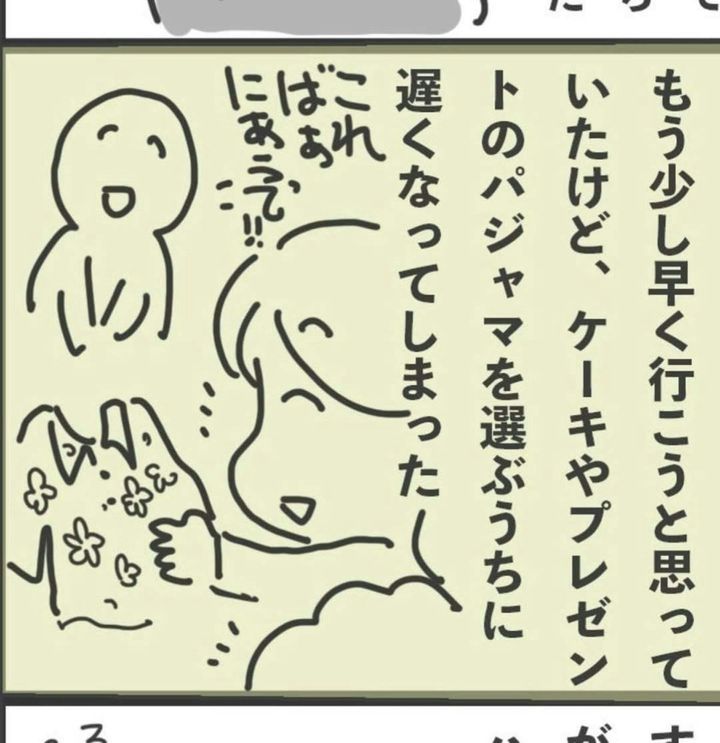 もう少し早く行こうと思って
いたけど、ケーキやプレゼン
トのパジャマを選ぶうちに
遅くなってしまった
これ
ばぁ
にあうって!!